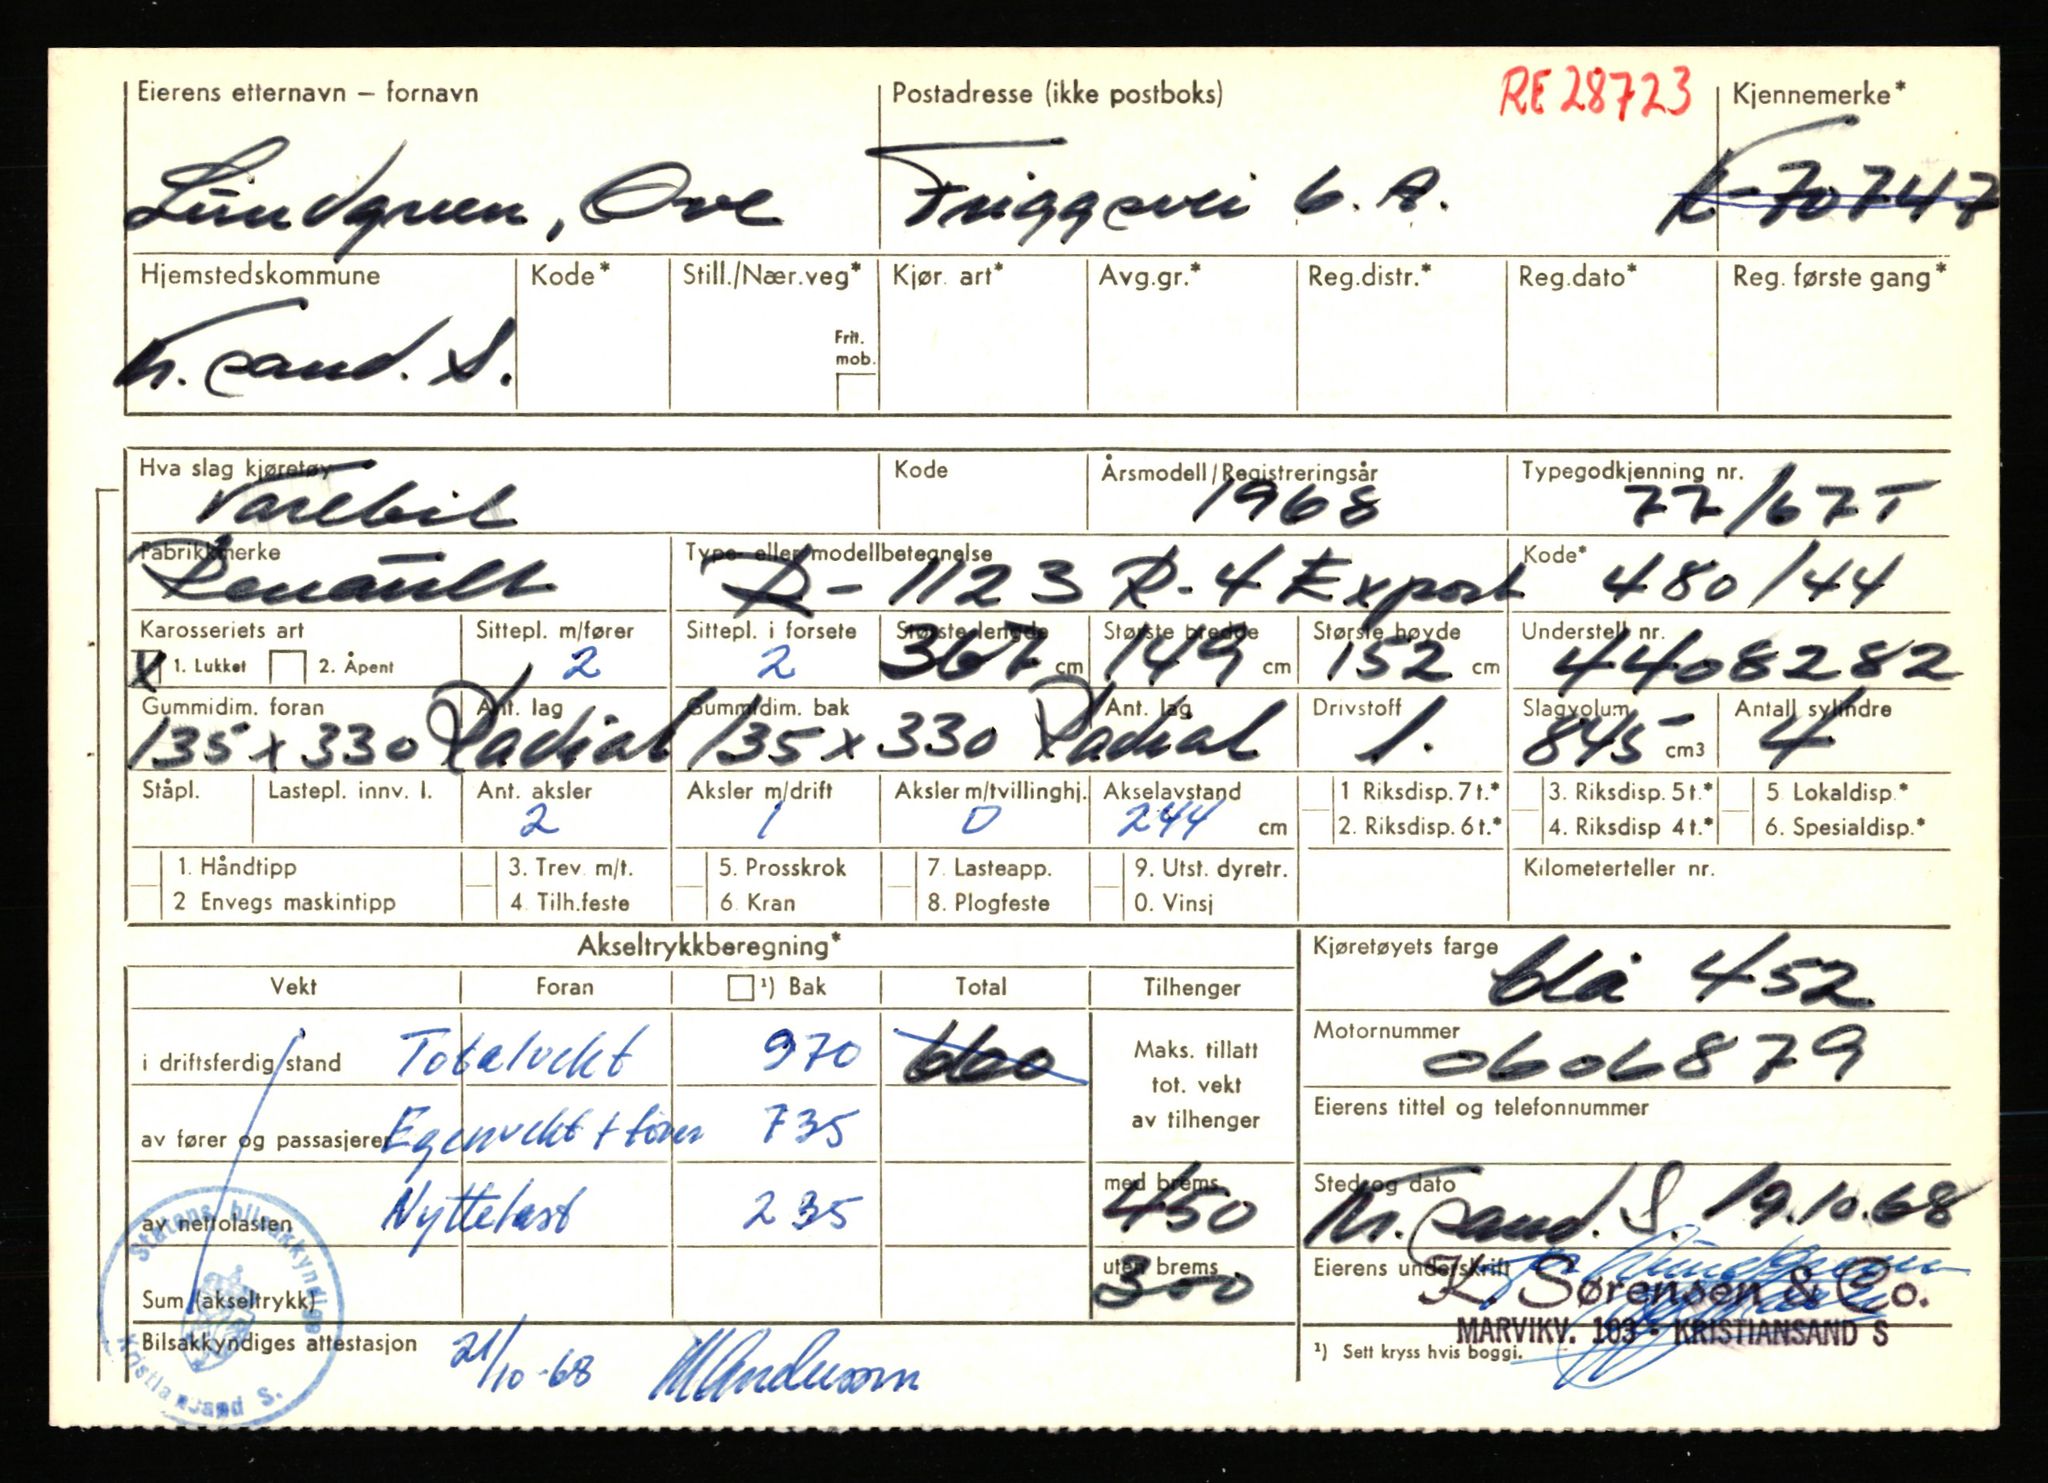 Eierens etternavn – fornavn Postadresse (ikke postboks) RE 28723 Kjennemerke*
Lundgren, Ove Friggsvei 6.A. K-70747
Hjemstedskommune Kode* Still./Nær.veg* Kjør. art* Avg.gr.* Reg.distr.* Reg.dato* Reg. første gang*
Frit.
mob.
Kr.sand. S.
Hva slag kjøretøy Kode Årsmodell/Registreringsår Typegodkjenning nr.
Varebil 1968 77/67T
Fabrikkmerke Type- eller modellbetegnelse Kode*
Renault R-1123 R-4 Export 480/44
Karosseriets art Sittepl. m/fører Sittepl. i forsete Største lengde Største bredde Største høyde Understell nr.
X 1. Lukket 2. Åpent 2 2 367 cm 149 cm 152 cm 4408282
Gummidim. foran Ant. lag Gummidim. bak Ant. lag Drivstoff Slagvolum Antall sylindre
135 x 330 Radial 135 x 330 Radial 1. 845 cm3 4
Ståpl. Lastepl. innv. l. Ant. aksler Aksler m/drift Aksler m/tvillinghj. Akselavstand 1 Riksdisp. 7 t.* 3. Riksdisp. 5 t.* 5 Lokaldisp.*
2 1 0 244 cm 2. Riksdisp. 6 t.* 4. Riksdisp 4 t.* 6. Spesialdisp.*
1. Håndtipp 3. Trev. m/t. 5. Prosskrok 7. Lasteapp. 9. Utst. dyretr. Kilometerteller nr.
2 Envegs maskintipp 4. Tilh.feste 6. Kran 8. Plogfeste 0. Vinsj
Akseltrykkberegning* Kjøretøyets farge
blå 452
Vekt Foran ¹) Bak Total Tilhenger
Motornummer
0606879
i driftsferdig stand Totalvekt 970 660 Maks. tillatt
tot. vekt
av tilhenger
Eierens tittel og telefonnummer
av fører og passasjerer Egenvekt + fører 735
med brems Sted og dato
av nettolasten Nyttelast 235 450 Kr.sand. S. 19.10.68
uten brems Eierens underskrift
Sum (akseltrykk) 300 K. Sørensen & Co.
MARVIKV. 103 - KRISTIANSAND S
Bilsakkyndiges attestasjon 21/10-68
¹) Sett kryss hvis boggi.
Statens bilsakkyndige
Kristiansand S.